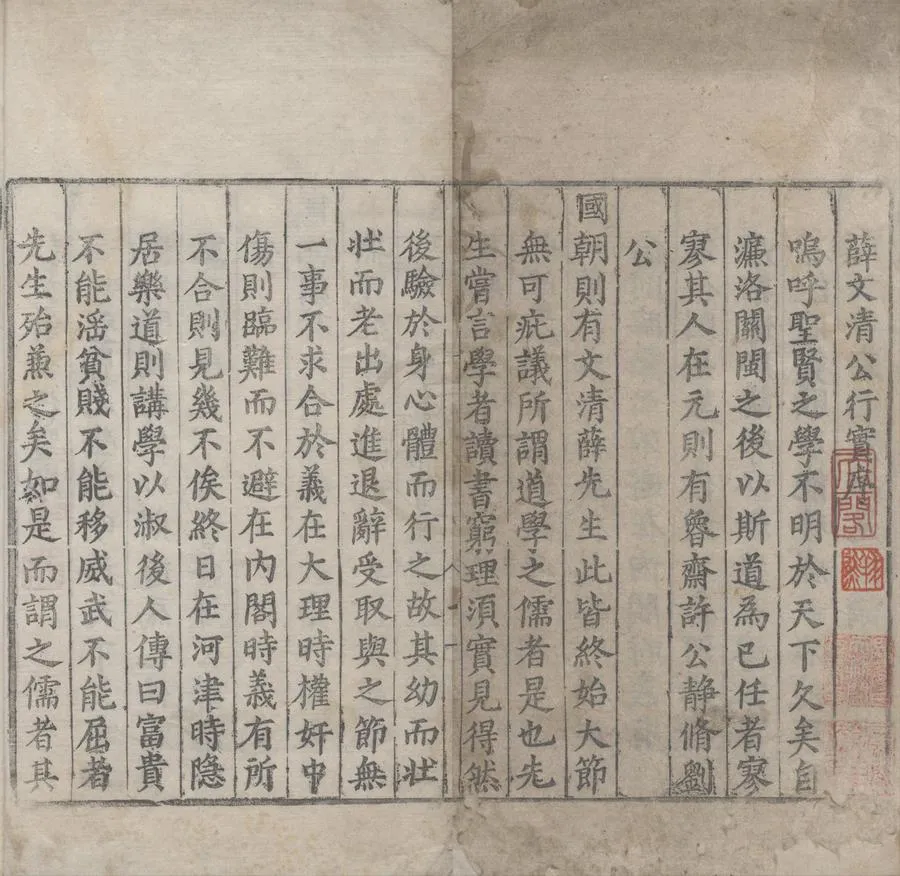 薛文清公行實序
嗚呼聖賢之學不明於天下久矣自
濂洛關閩之後以斯道為已任者寥
寥其人在元則有魯齋許公靜脩劉
公
國朝則有文清薛先生此皆終始大節
無可疵議所謂道學之儒者是也先
生嘗言學者讀書窮理湏實見得然
後驗於身心體而行之故其幼而壯
壯而老出處進退辭受取與之節無
一事不求合於義在大理時權奸中
傷則臨難而不避在内閣時義有所
不合則見幾不俟終日在河津時隐
居樂道則講學以淑後人傳曰富貴
不能滛貧賤不能移威武不能屈者
先生殆蒹之矣如是而謂之儒者其